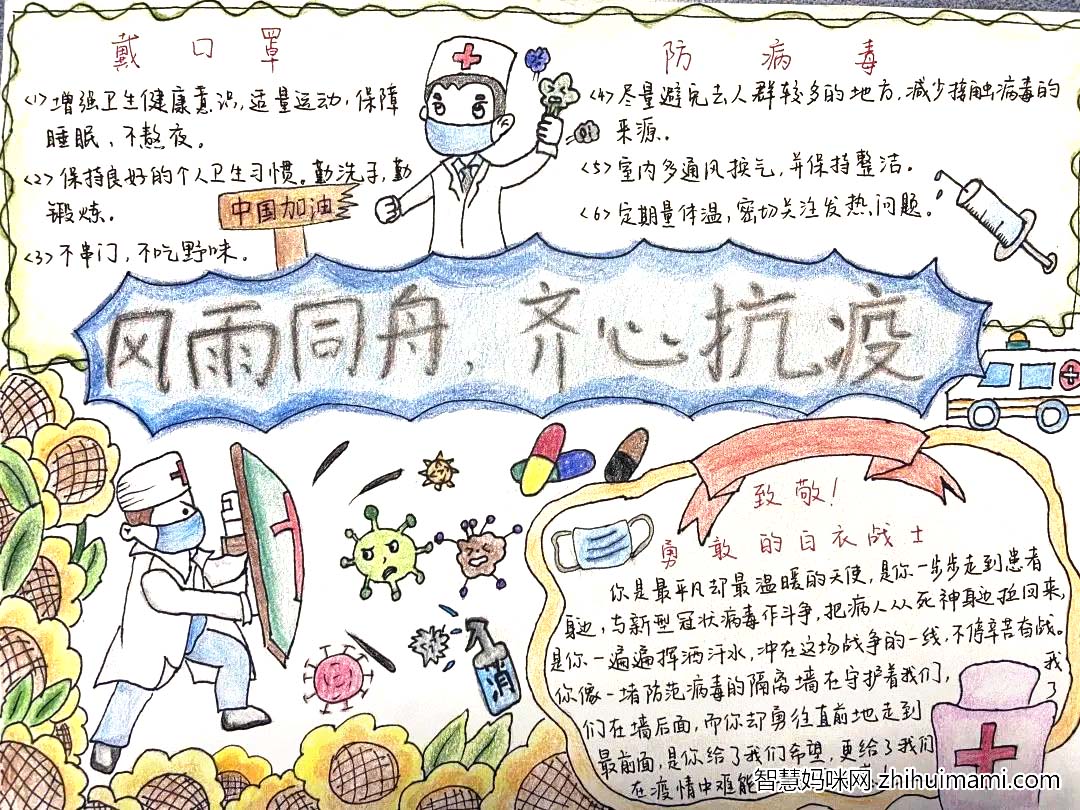 戴口罩
<1>增强卫生健康意识,适量运动,保障
睡眠、不熬夜。
<2>保持良好的个人卫生习惯。勤洗手,勤
锻炼。
<3>不串门,不吃野味。
中国加油
防病毒
<4>尽量避免去人群较多的地方,减少接触病毒的
来源。
<5>室内多通风换气,并保持整洁。
<6>定期量体温,密切关注发热问题。
风雨同舟,齐心抗疫
消
致敬!
勇敢的白衣战士
你是最平凡却最温暖的天使,是你一步步走到患者
身边,与新型冠状病毒作斗争,把病人从死神身边拉回来,
是你一遍遍挥洒汗水,冲在这场战争的一线,不停辛苦奋战。
你像一堵防范病毒的隔离墙在守护着我们,我
们在墙后面,而你却勇往直前地走到了
最前面,是你给了我们希望,更给了我们
在疫情中难能
智慧妈咪网 zhihuimami.com